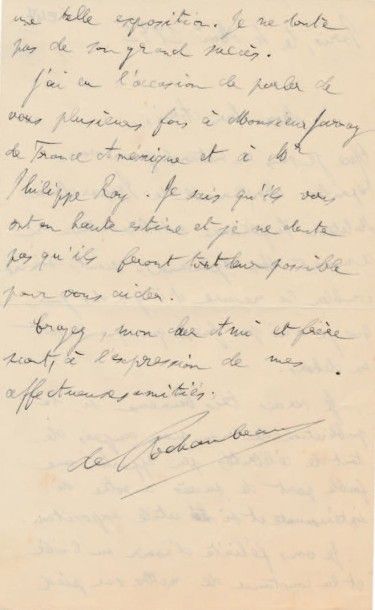 une telle exposition. Je ne doute
pas de son grand succès.
J'ai eu l'occasion de parler de
vous plusieurs fois à Monsieur Jaray
de France Amérique et à Mr
Philippe Roy. Je sais qu'ils vous
ont en haute estime et je ne doute
pas qu'ils feront tout leur possible
pour vous aider.
Croyez, mon cher Ami et frère
scout, à l'expression de mes
affectueuses amitiés.
de Rochambeau